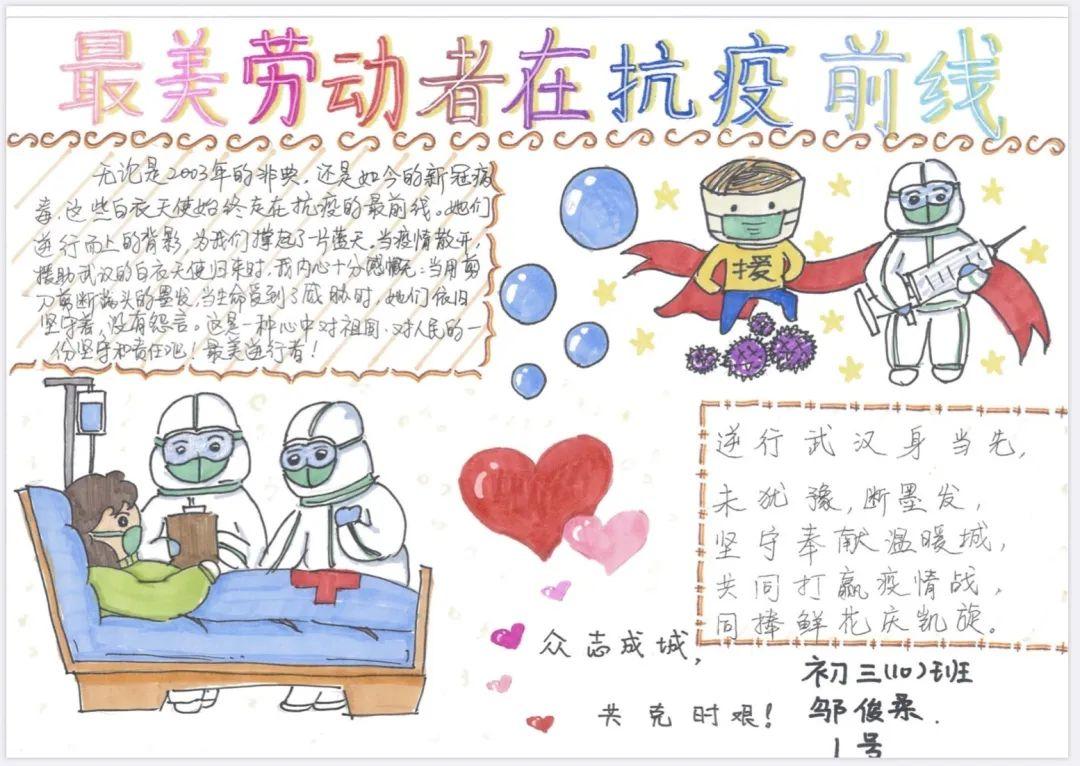 最美劳动者在抗疫前线
无论是2003年的非典，还是如今的新冠病
毒，这些白衣天使始终走在抗疫的最前线。她们
逆行而上的背影，为我们撑起了一片蓝天。当疫情散开，
援助武汉的白衣天使归来时，我内心十分感慨：当用剪
刀剪断满头的墨发，当生命受到了威胁时，她们依旧
坚守着，没有怨言。这是一种心中对祖国、对人民的一
份坚守和责任吧！最美逆行者！
援
逆行武汉身当先，
未犹豫，断墨发，
坚守奉献温暖城，
共同打赢疫情战，
同捧鲜花庆凯旋。
众志成城，
共克时艰！
初三(10)班
邹俊柔.
1号